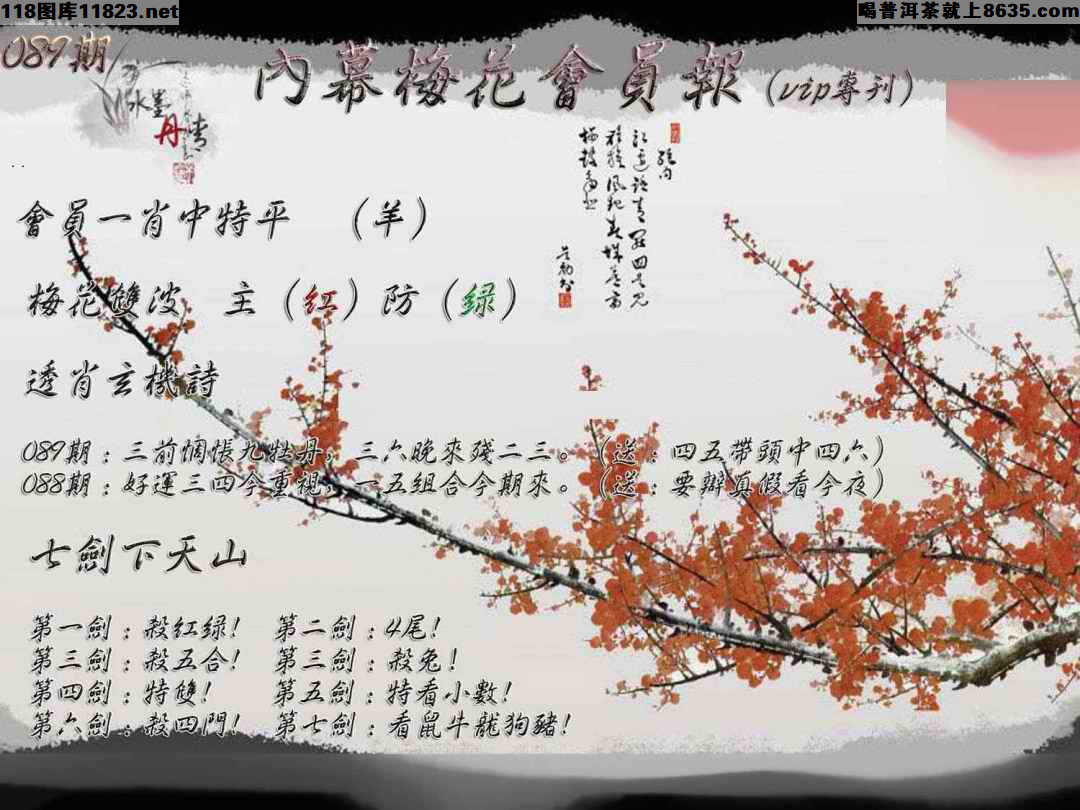 118图库11823.net
喝普洱茶就上8635.com
089期
內幕梅花會員報（vip專刊）
水墨
丹青
會員一肖中特平 （羊）
梅花雙波 主（红）防（绿）
透肖玄機詩
089期：三前惆悵九牡丹，三六晚來殘二三。（送：四五帶頭中四六）
088期：好運三四今重視，一五組合今期來。（送：要辦真假看今夜）
七劍下天山
第一劍：殺紅绿！ 第二劍：4尾！
第三劍：殺五合！ 第三劍：殺兔！
第四劍：特雙！ 第五劍：特看小數！
第六劍：殺四門！ 第七劍：看鼠牛龍狗豬！